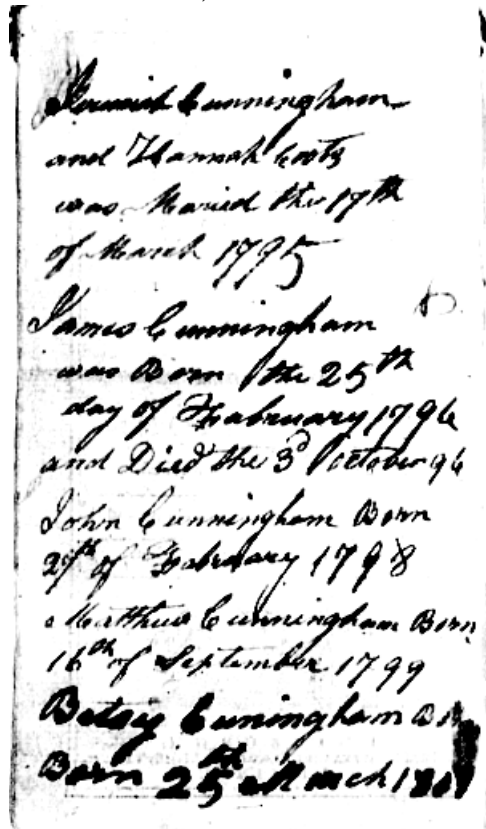 Cunningham
and Hannah Coots
was Maried the 17th
of March 1795
James Cunningham
was Born the 25th
day of February 1796
and Died the 3d October 96
John Cunningham Born
27th of February 1798
Matthew Cunningham Born
16th of September 1799
Betsey Cuningham
Born 25th March 1801